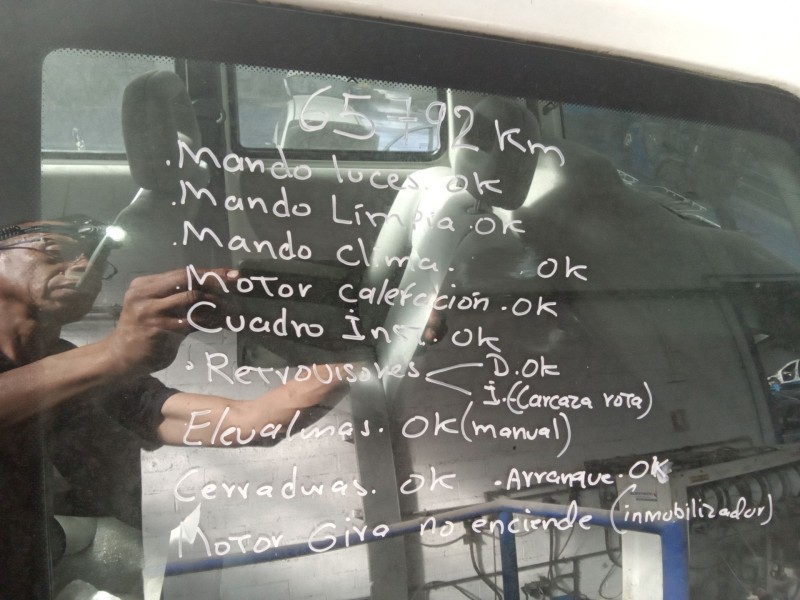 65792 Km
.Mando luces. ok
.Mando Limpia. ok
.Mando clima. ok
.Motor calefacción. ok
.Cuadro Ins.. ok
. Retrovisores D. ok
I. (carcaza rota)
Elevalunas. ok (manual)
Cerraduras. ok .Arranque. ok
Motor Gira no enciende (inmobilizador)